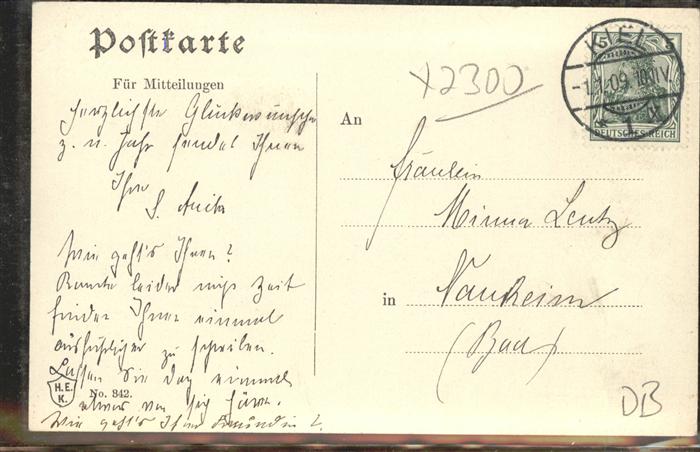 Postkarte
Für Mitteilungen
Herzlichste Glückwünsche
z. n. Jahr sendet Ihnen
Ihre
S. Anita
Wie geht's Ihnen?
Konnte leider nicht Zeit
finden Ihnen einmal
ausführlicher zu schreiben.
Lassen Sie doch einmal
etwas von sich hören.
Wie geht's Ihrer Freundin?
H.E.
K.
No. 342.
x2300
An
Fräulein
Minna Lentz
in Nauheim
(Bad)
KIEL
1.1.09
1
5 5
DEUTSCHES REICH
DB